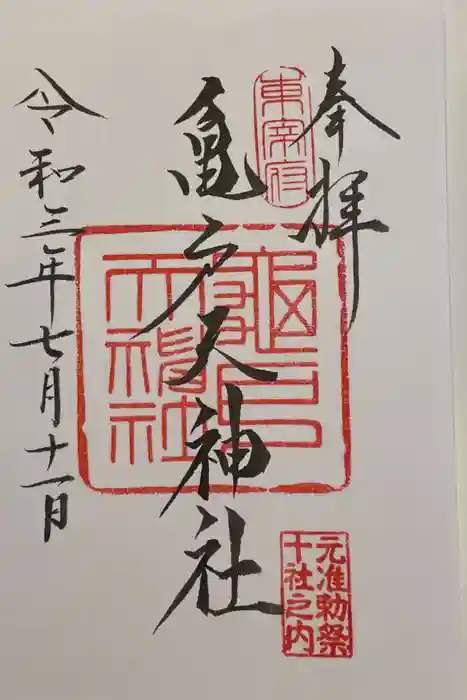 奉拝
東宰府
亀戸天神社
元准勅祭
十社之内
令和三年七月十一日